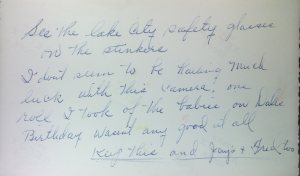 See the Lake City safety glasses
on the stinkers
I don't seem to be having much
luck with this camera, one
roll I took of the babies on
Birthday wasn't any good at all
Keep this and Jay's & Fred, too